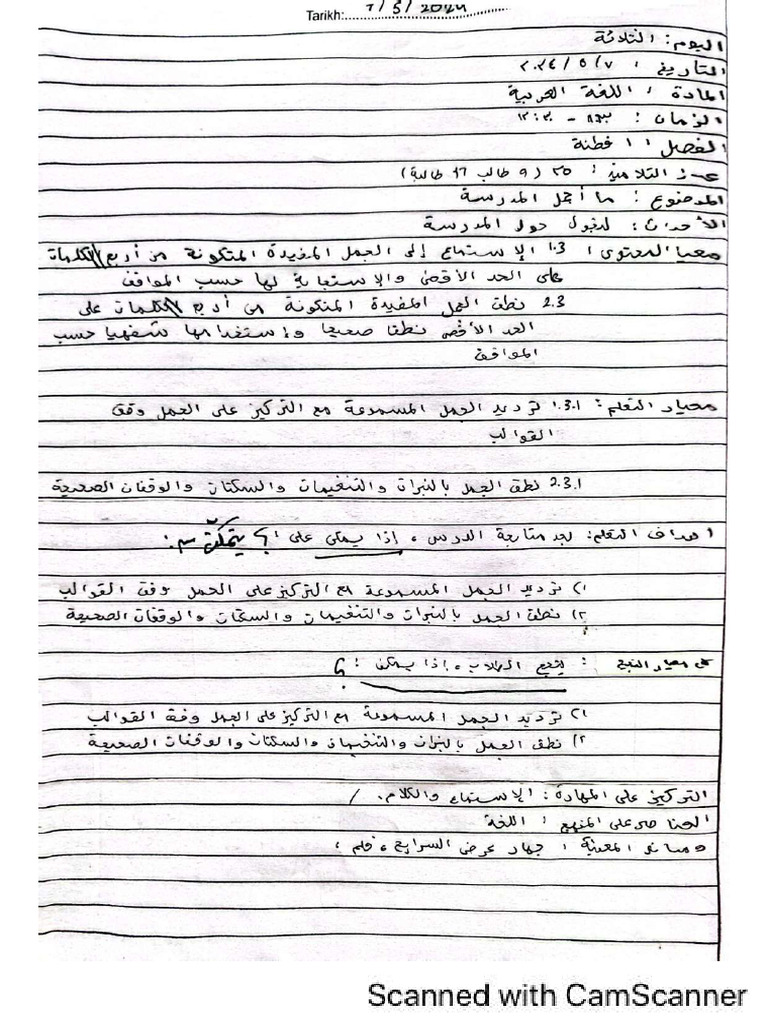 Tarikh: 7/5/2024
اليوم: الثلاثة
التاريخ: ٢٠٢٤/٥/٧
المادة: اللغة العربية
الزمان: - ١٢:٣٠
الفصل: ١ فطنة
عدد التلاميذ: ٢٥ (٩ طالب ١٦ طالبة)
الموضوع: ما أجمل المدرسة
الأحداث: لنقول حول المدرسة
معيار المحتوى: 1.3 الإستماع إلى الجمل المفيدة المتكونة من أربع الكلمات
على الحد الأقصى والاستجابة لها حسب المواقف
2.3 نطق الجمل المفيدة المتكونة من أربع الكلمات على
الحد الأقصى نطقا صحيحا وإستخدامها شفهيا حسب
المواقف
معيار التعلم: 1.3.1 ترديد الجمل المسموعة مع التركيز على الجمل وفق
القوالب
2.3.1 نطق الجمل بالنبرات والتنغيمات والسكتات والوقفات الصحيحة
اهداف التعلم: بعد متابعة الدرس، إذا يمكن على: يتمكن من:
١) ترديد الجمل المسموعة مع التركيز على الجمل وفق القوالب
٢) نطق الجمل بالنبرات والتنغيمات والسكتات والوقفات الصحيحة
معيار النجاح: ينجح الطلاب، إذا يمكن:
١) ترديد الجمل المسموعة مع التركيز على الجمل وفق القوالب
٢) نطق الجمل بالنبرات والتنغيمات والسكتات والوقفات الصحيحة
التركيز على المهارة: الإستماع والكلام.
العناصر على المنهج: اللغة
وسائل المعينة: جهاز عرض الشرايح، قلم،
Scanned with CamScanner